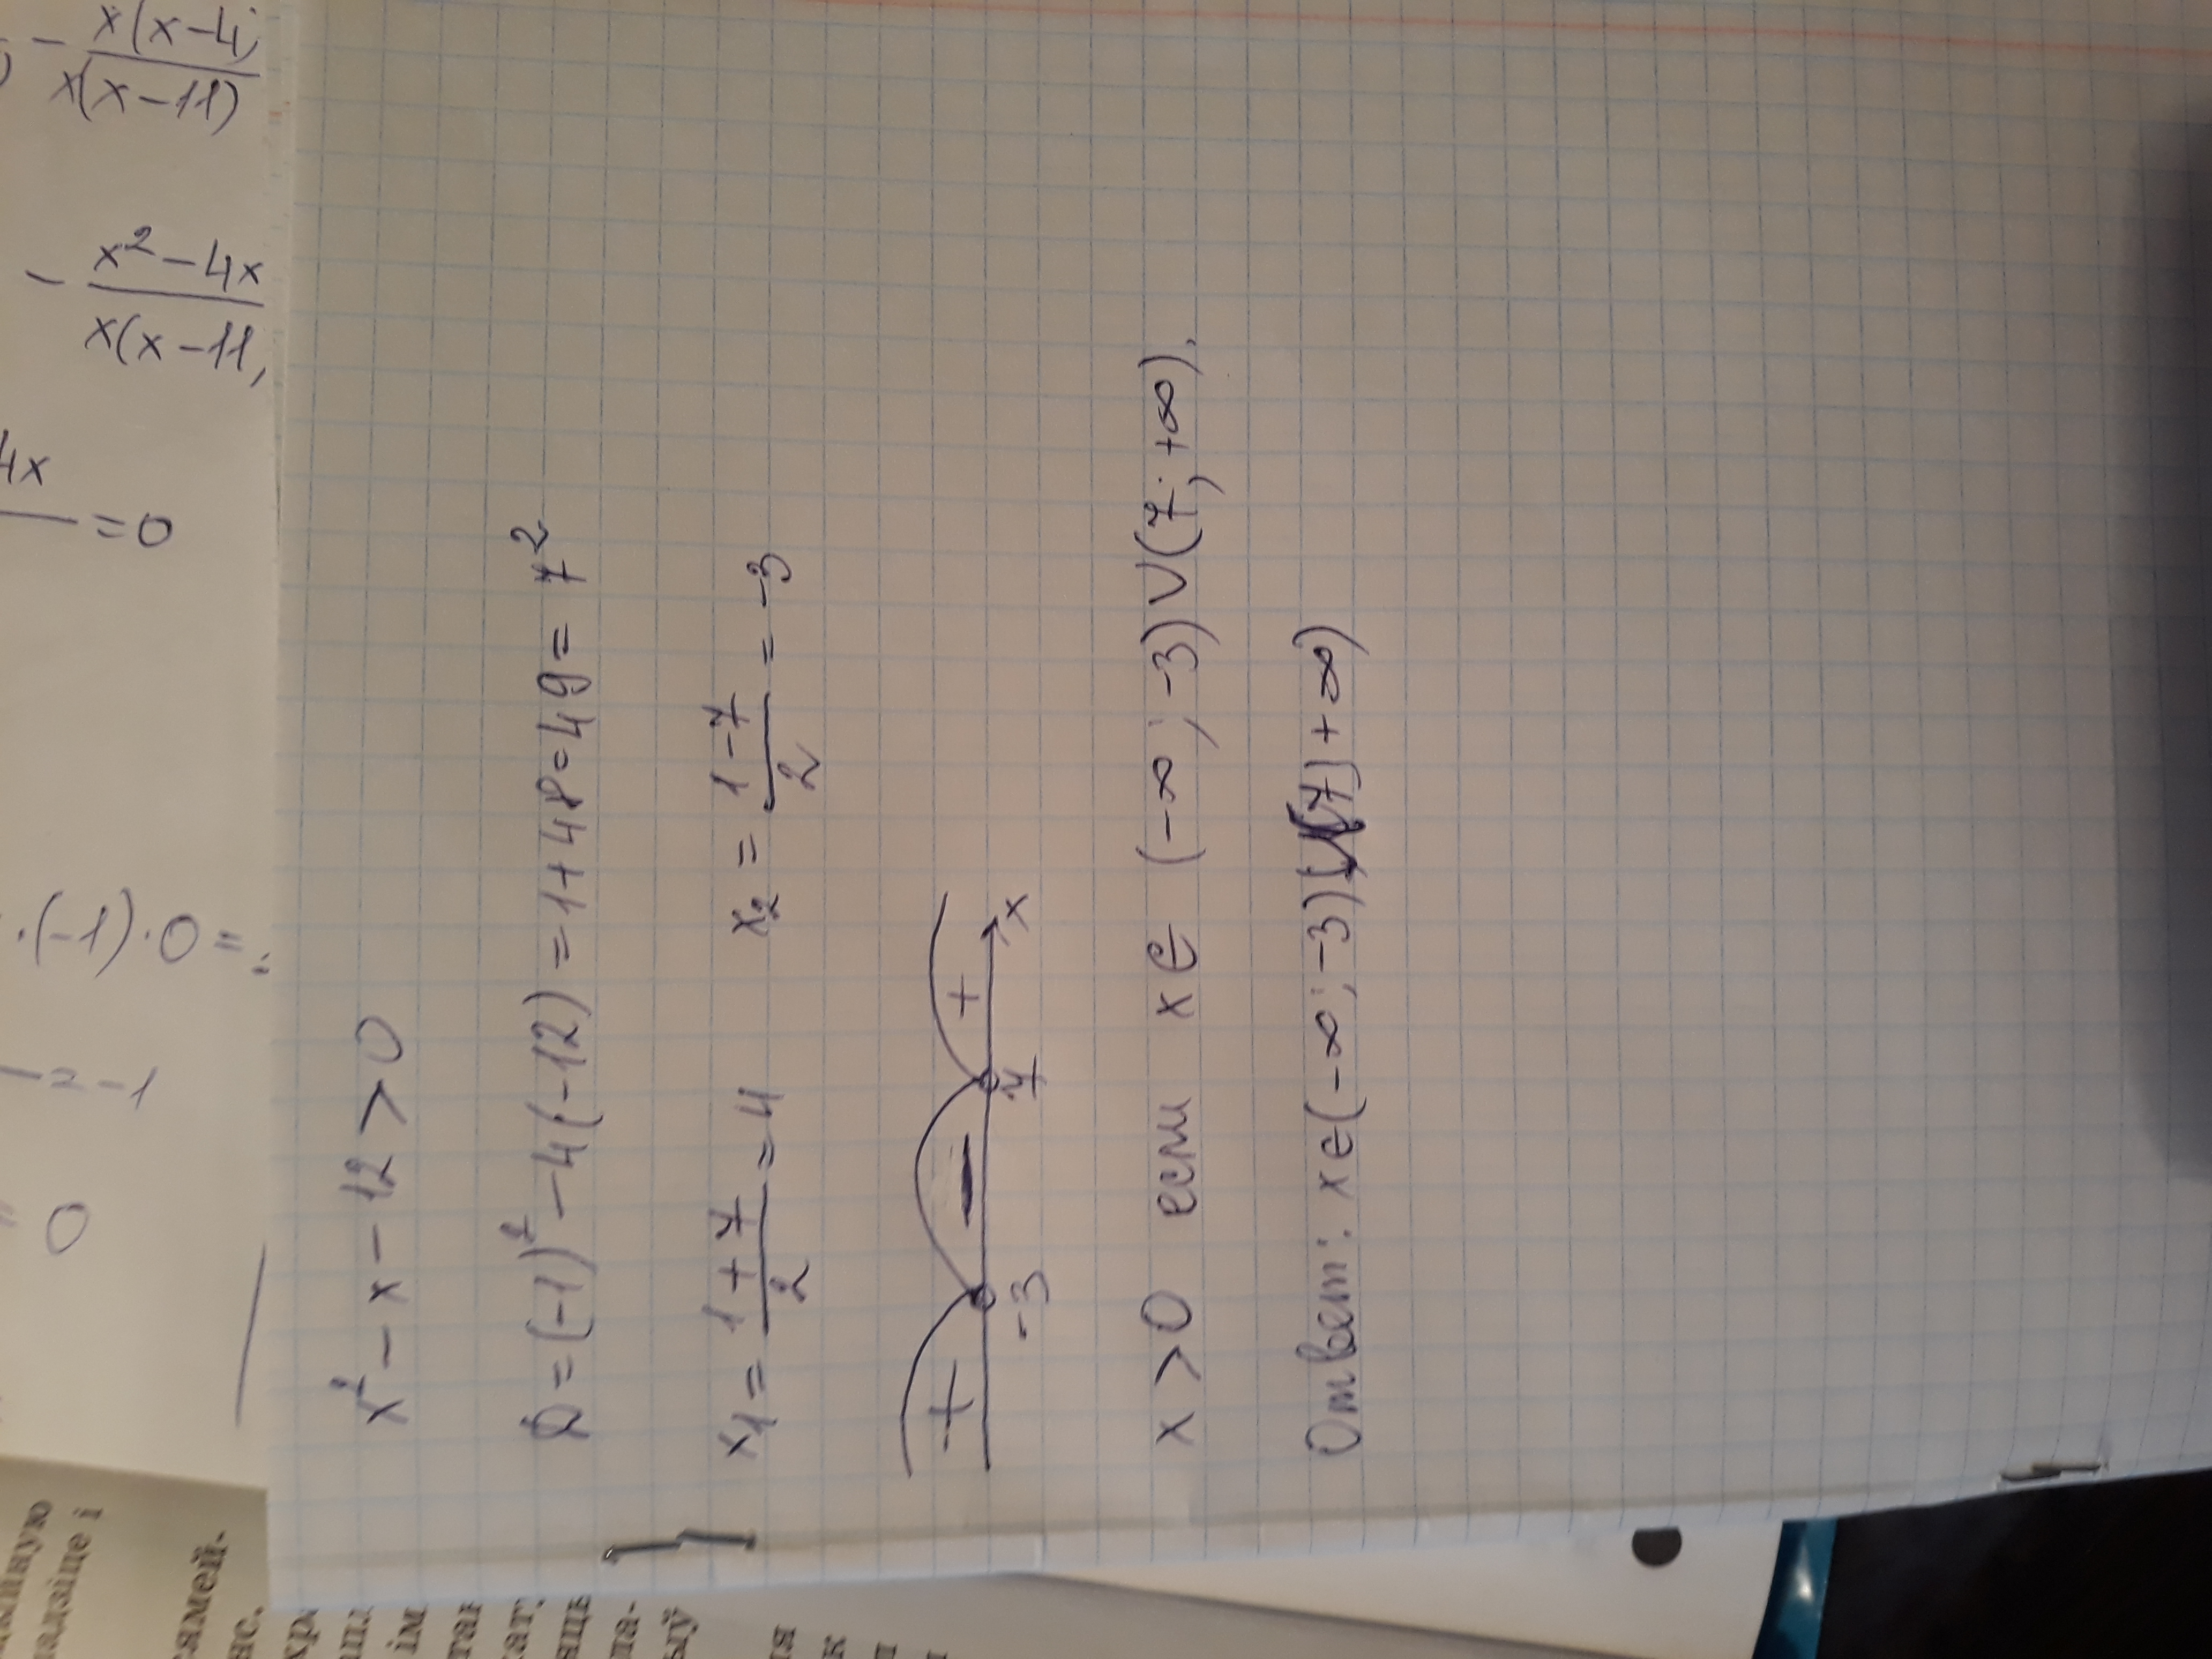 x² - x - 12 > 0
D = (-1)² - 4(-12) = 1 + 48 = 49 = 7²
x₁ = (1 + 7)/2 = 4 x₂ = (1 - 7)/2 = -3
+ - +
-3 7 x
x > 0 если x ∈ (-∞; -3) ∪ (7; +∞).
Ответ: x ∈ (-∞; -3) ∪ (7; +∞)
- x(x-4)
x(x-11)
- x² - 4x
x(x-11,
4x
= 0
·(-1)·0 =
= -1
0